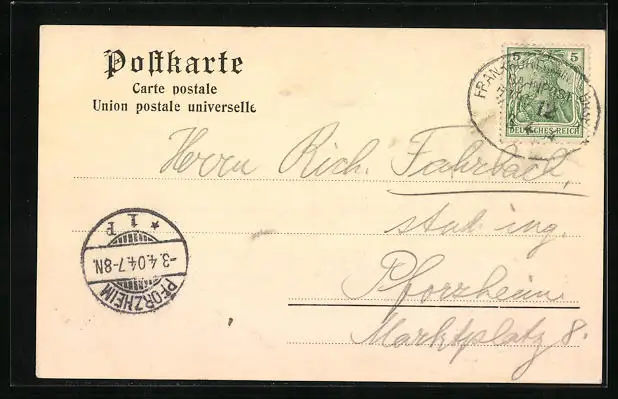 Postkarte
Carte postale
Union postale universelle
5
DEUTSCHES REICH
FRANKFURT
Bahnpost
Herrn Rich. Fahrbach,
stud. ing.
Pforzheim
Marktplatz 8.
* 1 P
-3.4.04.7-8N.
PFORZHEIM